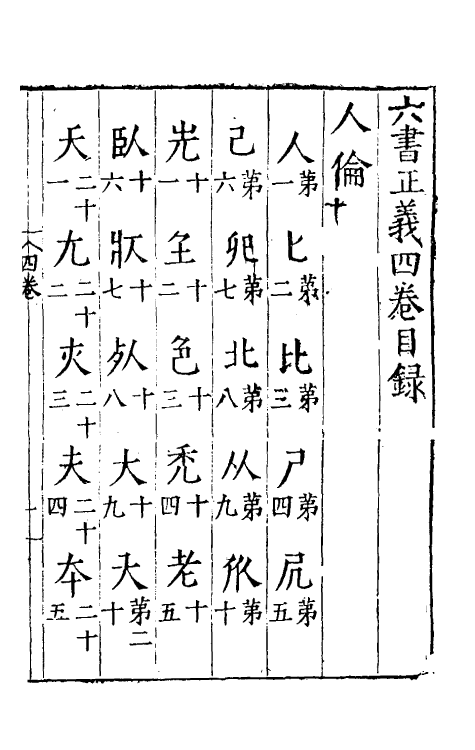 六書正義四卷目録
人倫十
人第一 匕第二 比第三 尸第四 尻第五
己第六 第七 北第八 从第九 㐺第十
十一 𡈼十二 色十三 禿十四 老十五
臥十六 十七 十八 大十九 天第二十
夭二十一 尢二十二 二十三 夫二十四 夲二十五
四卷
一